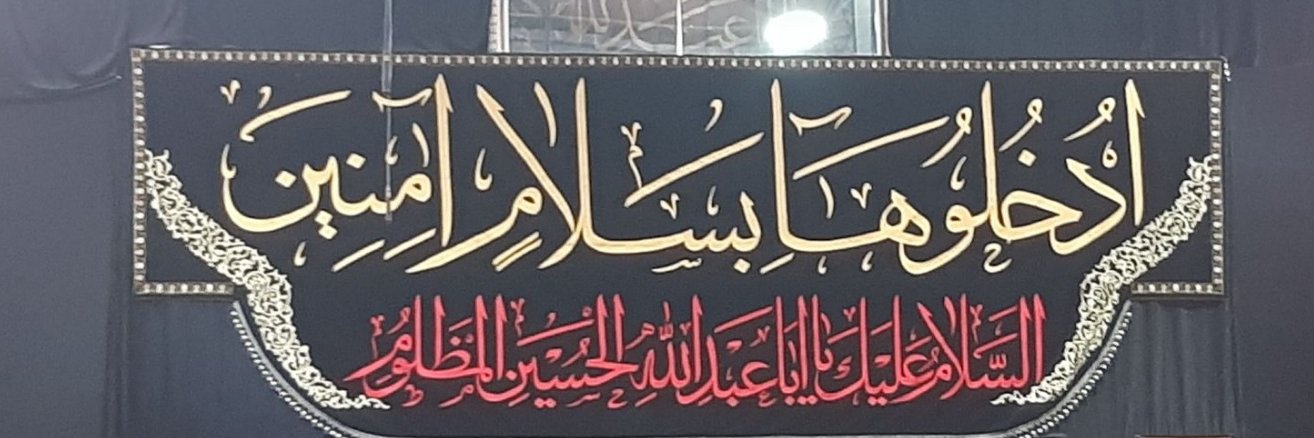 ادْخُلُوهَا بِسَلَامٍ آمِنِين
السَّلامُ عَلَيكَ يا اَبا عَبدِ اللهِ الحُسَينِ المَظلومُ